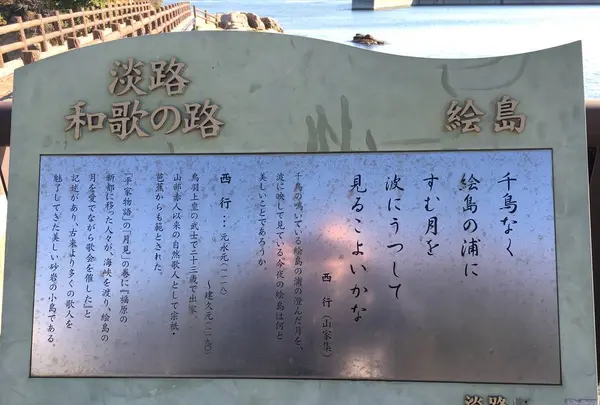 淡路
和歌の路
絵島
千鳥なく
絵島の浦に
すむ月を
波にうつして
見るこよいかな
西 行(山家集)
千鳥の鳴いている絵島の浦の澄んだ月を、
波に映して見ている今夜の絵島は何と
美しいことであろうか。
西 行… 元永元(一一一八)
～建久元(一一九〇)
鳥羽上皇の武士で二十三歳で出家。
山部赤人以来の自然歌人として宗祇・
芭蕉からも範とされた。
『平家物語』の「月見」の巻に『福原の
新都に移った人々が、海峡を渡り、絵島の
月を愛でながら歌会を催した』と
記述があり、古来より多くの歌人を
魅了してきた美しい砂岩の小島である。
淡路